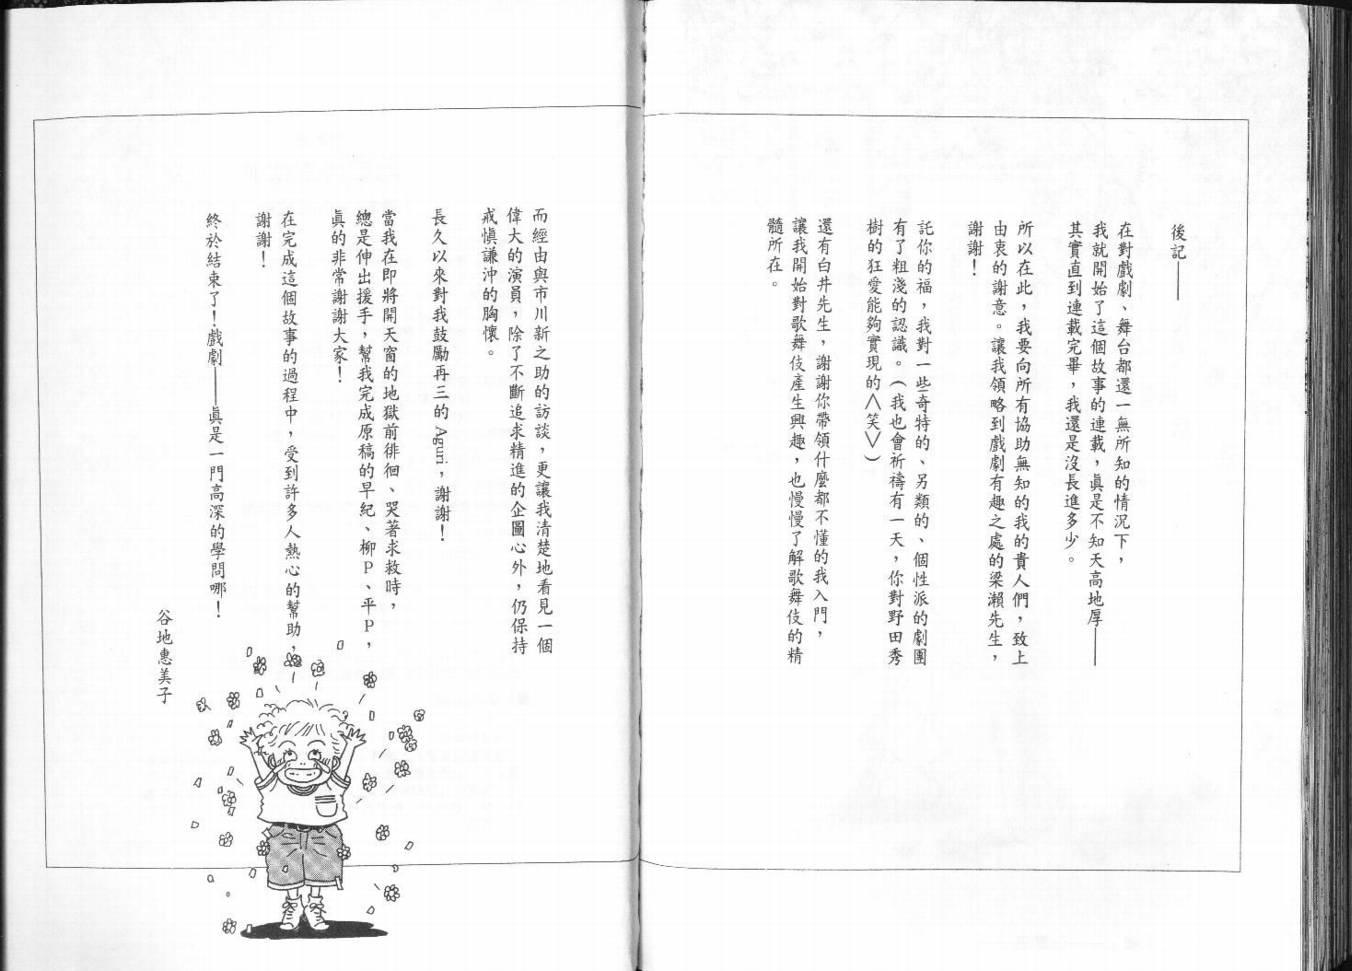 後記——
在對戲劇、舞台都還一無所知的情況下，
我就開始了這個故事的連載，真是不知天高地厚——
其實直到連載完畢，我還是沒長進多少。
所以在此，我要向所有協助無知的我的貴人們，致上
由衷的謝意。讓我領略到戲劇有趣之處的梁瀨先生，
謝謝！
託你的福，我對一些奇特的、另類的、個性派的劇團
有了粗淺的認識。（我也會祈禱有一天，你對野田秀
樹的狂愛能夠實現的〈笑〉）
還有白井先生，謝謝你帶領什麼都不懂的我入門，
讓我開始對歌舞伎產生興趣，也慢慢了解歌舞伎的精
髓所在。
而經由與市川新之助的訪談，更讓我清楚地看見一個
偉大的演員，除了不斷追求精進的企圖心外，仍保持
戒慎謙沖的胸懷。
長久以來對我鼓勵再三的Aguri，謝謝！
當我在即將開天窗的地獄前徘徊、哭著求救時，
總是伸出援手，幫我完成原稿的早紀、柳P、平P，
真的非常謝謝大家！
在完成這個故事的過程中，受到許多人熱心的幫助，
謝謝！
終於結束了！戲劇——真是一門高深的學問哪！
谷地惠美子